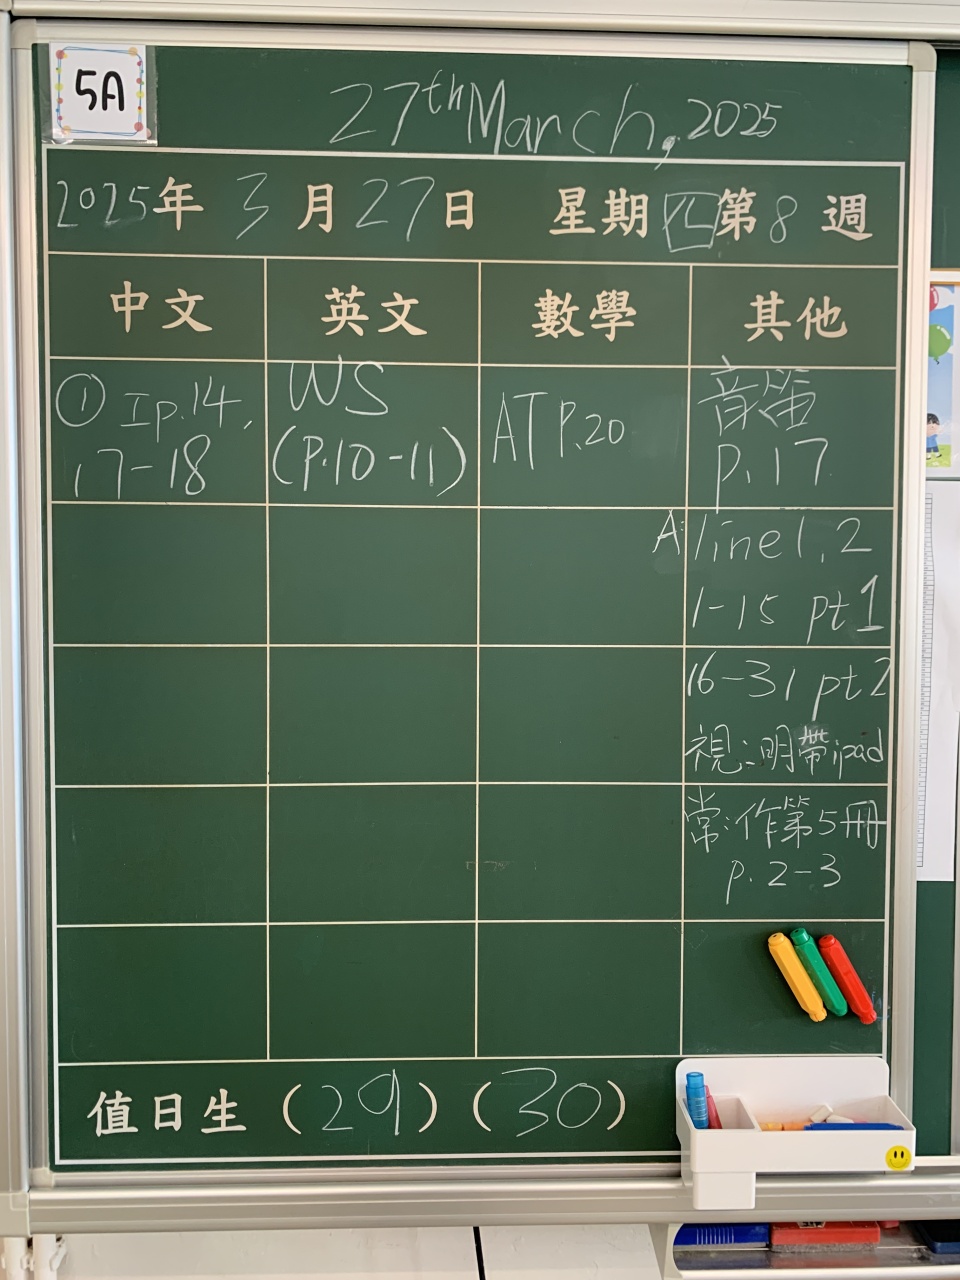 5A
27th March, 2025
2025年 3 月 27 日 星期 四 第 8 週
中文 英文 數學 其他
① Ip.14,
17-18
WS
(P.10-11)
AT P.20
音笛
p.17
A: line 1, 2
1-15 pt 1
16-31 pt 2
視:明帶ipad
常:作第5冊
p. 2-3
值日生 (29) (30)